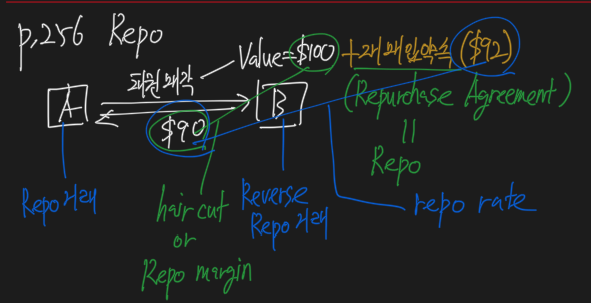 p.256 Repo
채권매각
Value=$100
+재매입약속 ($92)
A
B
(Repurchase Agreement)
$90
||
Repo
Repo거래
haircut
or
Repo margin
Reverse
Repo거래
repo rate